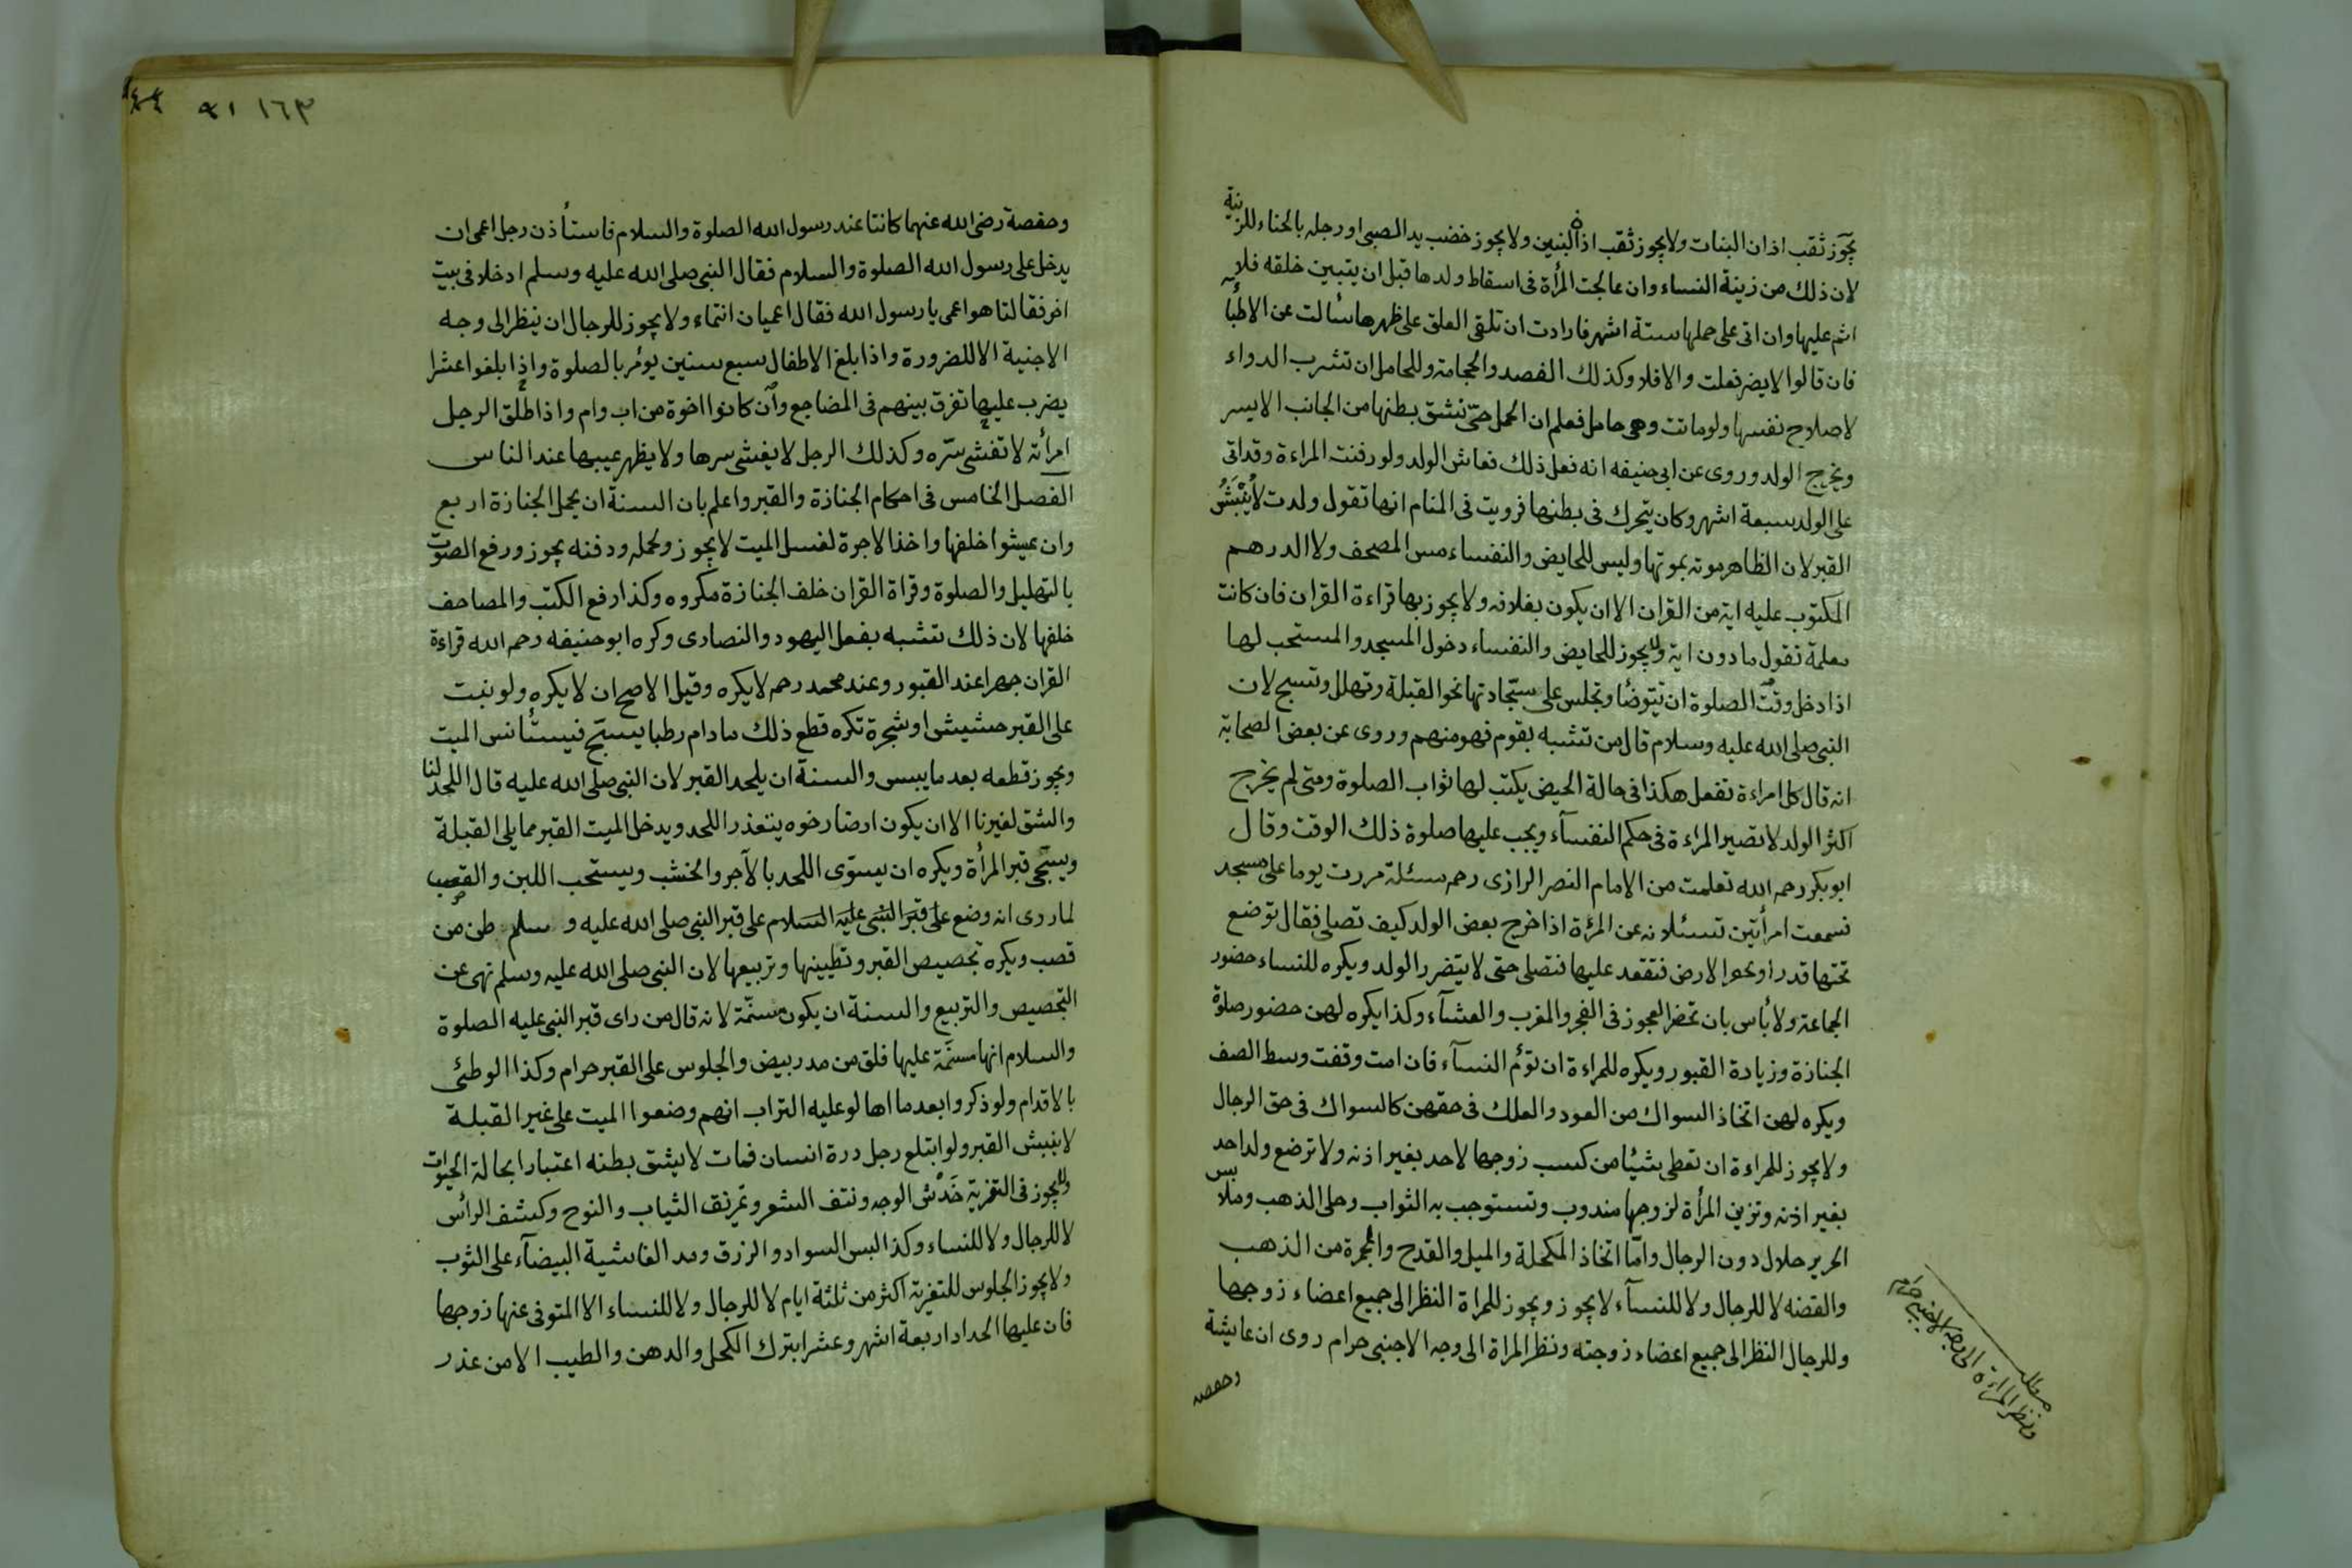 يجوز ثقب اذان البنات ولا يجوز ثقب اذان البنين ولا يجوز خضب يد الصبى او رجله بالحناء للزينة
لان ذلك من زينة النساء وان عالجت المرأة فى اسقاط ولدها قبل ان يتبين خلقه فلا
اثم عليها وان اتى على حملها ستة اشهر فارادت ان تلقى العلق على ظهرها سألت عن الاطبا
فان قالوا لا يضر فعلت والا فلا وكذلك الفصد والحجامة وللحامل ان تشرب الدواء
لاصلاح نفسها ولو ماتت وهى حامل فعلم ان الحمل حىّ تشق بطنها من الجانب الايسر
ويخرج الولد وروى عن ابى حنيفه انه فعل ذلك فعاش الولد ولو دفنت المراءة وقد اتى
على الولد سبعة اشهر وكان يتحرك فى بطنها فرويت فى المنام انها تقول ولدت لا يُنْبَشُ
القبر لان الظاهر موته بموتها وليس للحايض والنفساء مس المصحف ولا الدرهم
المكتوب عليه اية من القران الا ان يكون بغلافه ولا يجوز بها قراءة القران فان كانت
معلمة تقول ما دون اية ولا يجوز للحايض والنفساء دخول المسجد والمستحب لها
اذا دخل وقت الصلوة ان تتوضأ وتجلس على سجّادتها نحو القبلة وتهلل وتسبح لان
النبى صلى الله عليه وسلام قال من تشبه بقوم فهو منهم وروى عن بعض الصحابة
انه قال كل امراءة تفعل هكذا فى حالة الحيض يكتب لها ثواب الصلوة ومتى لم يخرج
اكثر الولد لا تصير المراءة فى حكم النفسآء ويجب عليها صلوة ذلك الوقت وقال
ابو بكر رحمه الله تعلمت من الامام النصر الرازى رحم مسئلة مررت يوما على مسجد
فسمعت امرأتين تسئلانه عن المرءة اذا خرج بعض الولد كيف تصلى فقال توضع
تحتها قدر او حفر الارض فتقعد عليها فتصلى حتى لا يتضرر الولد ويكره للنساء حضور
الجماعة ولا بأس بان تحضر العجوز فى الفجر والمغرب والعشآء وكذا يكره لهن حضور صلوة
الجنازة وزيادة القبور ويكره للمراءة ان تؤم النسآء فان امت وقفت وسط الصف
ويكره لهن اتخاذ السواك من العود والعلك فى حقهن كالسواك فى حق الرجال
ولا يجوز للمراءة ان تعطى بشيئا من كسب زوجها لاحد بغير اذنه ولا ترضع ولد احد
بغير اذنه وتزين المرأة لزوجها مندوب وتستوجب به الثواب وحلى الذهب وملابس
الحرير حلال دون الرجال وامّا اتخاذ المكحلة والميل والقدح والمجمرة من الذهب
والفضه لا للرجال ولا للنسآء لا يجوز ويجوز للمراة النظر الى جميع اعضاء زوجها
وللرجال النظر الى جميع اعضاء زوجته ونظر المراة الى وجه الاجنبى حرام روى ان عايشة
وحفصه
مطلب
ونظر المراءة الى وجه الاجنبى حرام
١٦٣ ٩١
وحفصة رضى الله عنهما كانتا عند رسول الله الصلوة والسلام فاستأذن رجل اعمى ان
يدخل على رسول الله الصلوة والسلام فقال النبى صلى الله عليه وسلم ادخلا فى بيت
اخر فقالتا هو اعمى يا رسول الله فقال اعميان انتماء ولا يجوز للرجال ان ينظر الى وجه
الاجنبية الا للضرورة واذا بلغ الاطفال سبع سنين يؤمر بالصلوة واذا بلغوا عشرا
يضرب عليها تفرق بينهم فى المضاجع وان كانوا اخوة من اب وام واذا طلق الرجل
امرأته لا تفشى سرّه وكذلك الرجل لا يفشى سرها ولا يظهر عيبها عند الناس
الفصل الخامس فى احكام الجنازة والقبر واعلم بان السنة ان يحمل الجنازة اربع
وان يمشوا خلفها واخذ الاجرة لغسل الميت لا يجوز ولحمله ودفنه يجوز ورفع الصوت
بالتهليل والصلوة وقراة القران خلف الجنازة مكروه وكذا رفع الكتب والمصاحف
خلفها لان ذلك تشبه بفعل اليهود والنصارى وكره ابو حنيفه رحمه الله قراءة
القران جهرا عند القبور وعند محمد رحم لا يكره وقيل الاصح ان لا يكره ولو نبت
على القبر حشيش او شجرة تكره قطع ذلك ما دام رطبا يسبّح فيستأنس الميت
ويجوز قطعه بعد ما يبس والسنة ان يلحد القبر لان النبى صلى الله عليه قال اللحد لنا
والشق لغيرنا الا ان يكون ارضا رخوه يتعذر اللحد ويدخل الميت القبر مما يلى القبلة
ويسجّى قبر المرأة ويكره ان يسوّى اللحد بالآجر والخشب ويستحب اللبن والقصب
لما روى انه وضع على قبر النبى عليه السلام على قبر النبى صلى الله عليه وسلم طن من
قصب ويكره تجصيص القبر وتطيينها وتربيعها لان النبى صلى الله عليه وسلم نهى عن
التجصيص والتربيع والسنة ان يكون مسنّمة لانه قال من راى قبر النبى عليه الصلوة
والسلام انها مسنّمة عليها فلق من مدر بيض والجلوس على القبر حرام وكذا الوطئ
بالاقدام ولو ذكروا بعد ما اهالو عليه التراب انهم وضعوا الميت على غير القبلة
لا ينبش القبر ولو ابتلع رجل درة انسان فمات لا يشق بطنه اعتبارا بحالة الحيوات
ولا يجوز فى التعزية خَدْش الوجه ونتف الشعر وتمزيق الثياب والنوح وكشف الرأس
لا للرجال ولا للنساء وكذا البس السواد والزرق ومد الغاشية البيضآء على الثوب
ولا يجوز الجلوس للتعزية اكثر من ثلثة ايام لا للرجال ولا للنساء الا المتوفى عنها زوجها
فان عليها الحداد اربعة اشهر وعشرا بترك الكحل والدهن والطيب الا من عذر